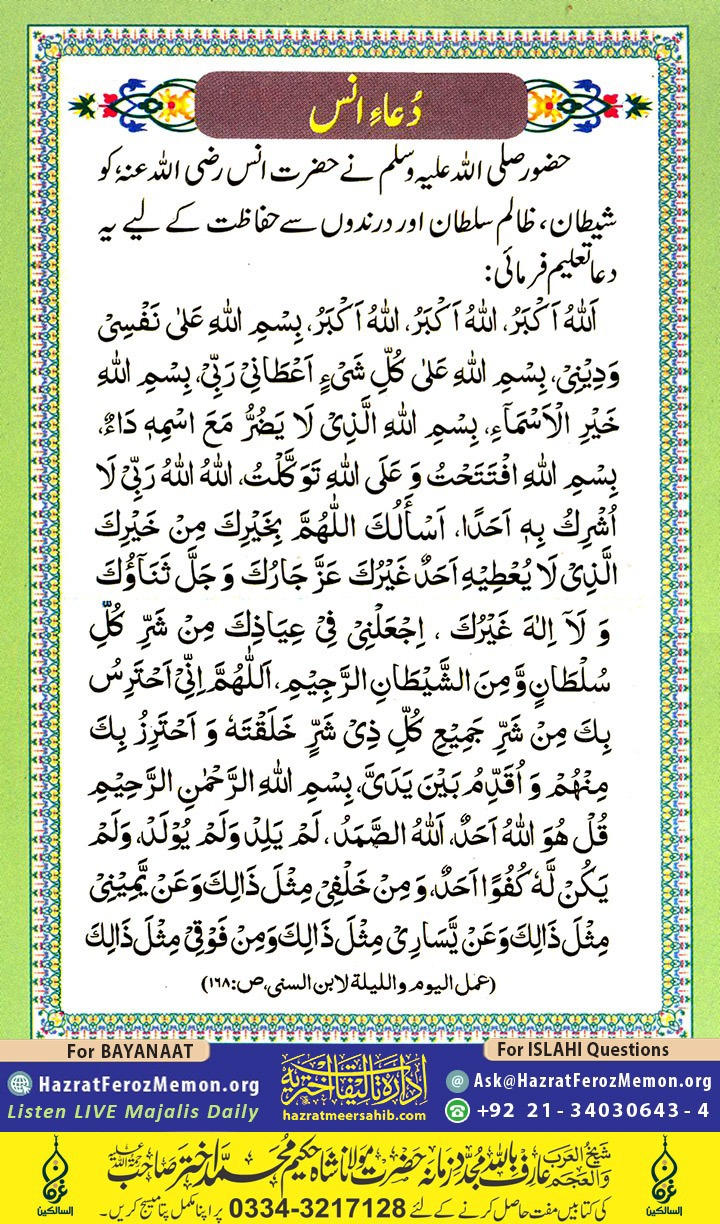 دُعاءِ انس
حضور صلی اللہ علیہ وسلم نے حضرت انس رضی اللہ عنہٗ کو
شیطان، ظالم سلطان اور درندوں سے حفاظت کے لیے یہ
دعا تعلیم فرمائی:
اَللّٰهُ اَكْبَرُ، اَللّٰهُ اَكْبَرُ، اَللّٰهُ اَكْبَرُ، بِسْمِ اللهِ عَلٰى نَفْسِىْ
وَدِيْنِىْ، بِسْمِ اللهِ عَلٰى كُلِّ شَىْءٍ اَعْطَانِىْ رَبِّىْ، بِسْمِ اللهِ
خَيْرِ الْاَسْمَآءِ، بِسْمِ اللهِ الَّذِىْ لَا يَضُرُّ مَعَ اسْمِهٖ دَاءٌ،
بِسْمِ اللهِ افْتَتَحْتُ وَ عَلَى اللهِ تَوَكَّلْتُ، اَللهُ اَللهُ رَبِّىْ لَا
اُشْرِكُ بِهٖ اَحَدًا، اَسْأَلُكَ اللّٰهُمَّ بِخَيْرِكَ مِنْ خَيْرِكَ
الَّذِىْ لَا يُعْطِيْهِ اَحَدٌ غَيْرُكَ عَزَّ جَارُكَ وَ جَلَّ ثَنَآؤُكَ
وَ لَآ اِلٰهَ غَيْرُكَ ، اِجْعَلْنِىْ فِىْ عِيَاذِكَ مِنْ شَرِّ كُلِّ
سُلْطَانٍ وَّ مِنَ الشَّيْطَانِ الرَّجِيْمِ، اَللّٰهُمَّ اِنِّىْ اَحْتَرِسُ
بِكَ مِنْ شَرِّ جَمِيْعِ كُلِّ ذِىْ شَرٍّ خَلَقْتَهٗ وَ اَحْتَرِزُ بِكَ
مِنْهُمْ وَ اُقَدِّمُ بَيْنَ يَدَىَّ، بِسْمِ اللهِ الرَّحْمٰنِ الرَّحِيْمِ
قُلْ هُوَ اللهُ اَحَدٌ، اَللهُ الصَّمَدُ ، لَمْ يَلِدْ وَلَمْ يُوْلَدْ، وَلَمْ
يَكُنْ لَّهٗ كُفُوًا اَحَدٌ، وَ مِنْ خَلْفِىْ مِثْلَ ذَالِكَ وَ عَنْ يَّمِيْنِىْ
مِثْلَ ذَالِكَ وَ عَنْ يَّسَارِىْ مِثْلَ ذَالِكَ وَمِنْ فَوْقِىْ مِثْلَ ذَالِكَ
(عمل اليوم والليلة لابن السنى، ص:۱۶۸)
For BAYANAAT
For ISLAHI Questions
HazratFerozMemon.org
ادارہ تالیفات اختریہ
Ask@HazratFerozMemon.org
Listen LIVE Majalis Daily
hazratmeersahib.com
+92 21 - 34030643 - 4
شیخ العرب والعجم عارف باللہ مجدد زمانہ حضرت مولانا شاہ حکیم محمد اختر صاحب رحمۃ اللہ علیہ
کی کتابیں مفت حاصل کرنے کے لئے 0334-3217128 پر اپنا مکمل پتا میسج کریں۔
السالکین
السالکین